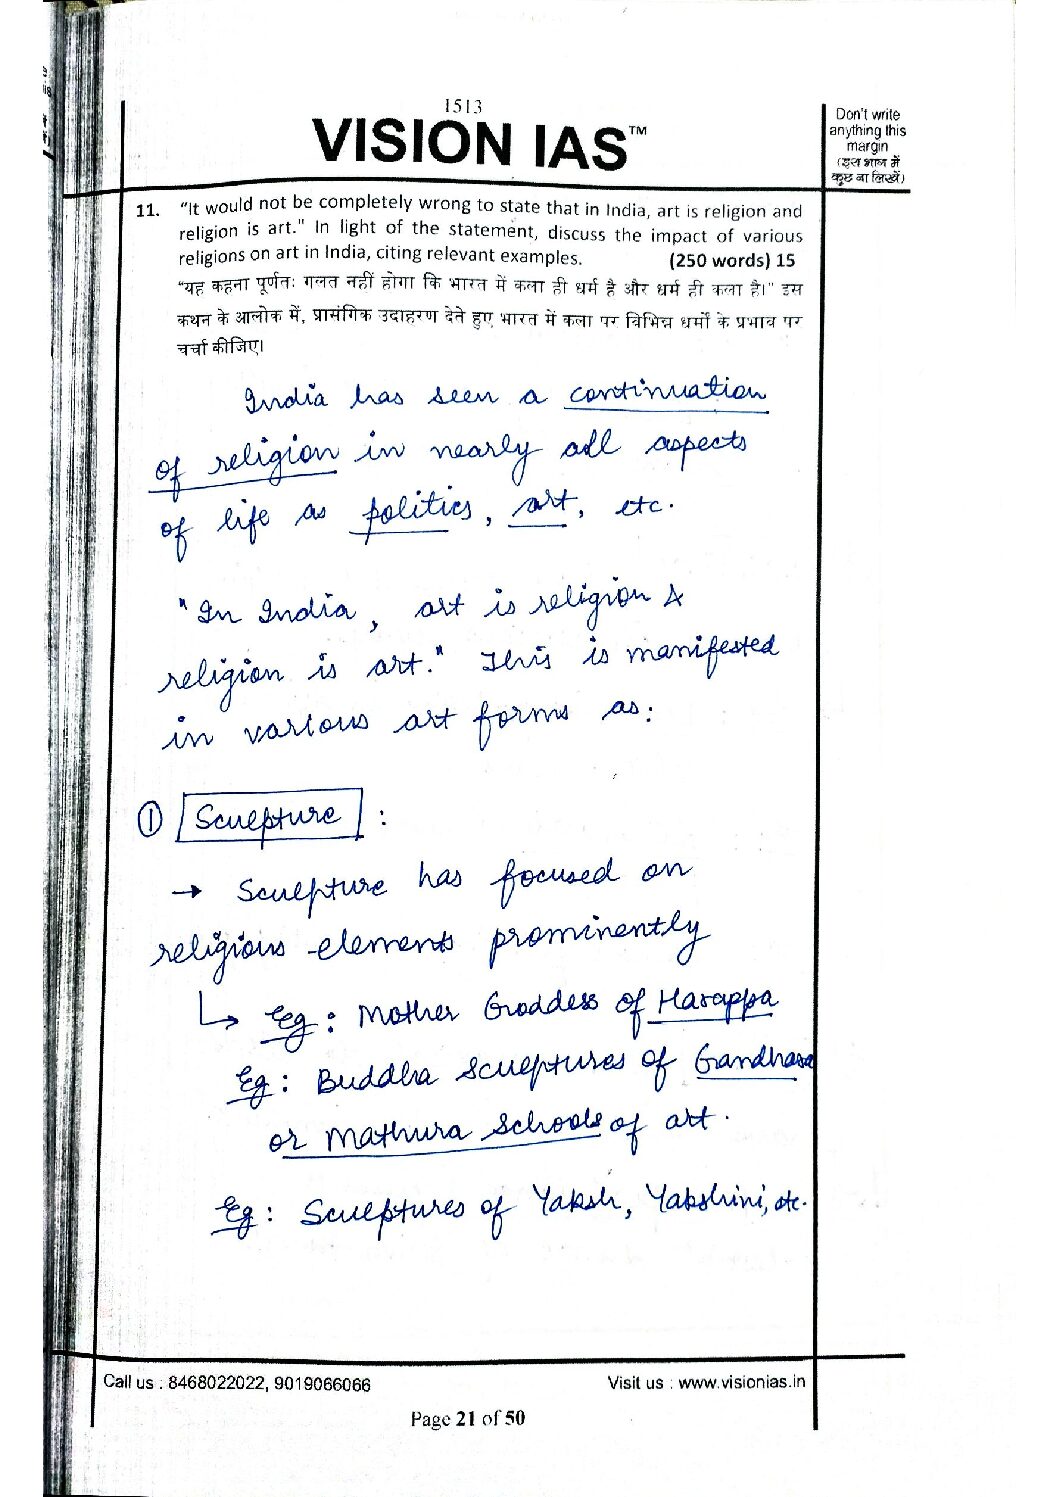 1513
VISION IAS™
Don't write
anything this
margin
(इस भाग में
कुछ ना लिखें)
11. "It would not be completely wrong to state that in India, art is religion and
religion is art." In light of the statement, discuss the impact of various
religions on art in India, citing relevant examples. (250 words) 15
"यह कहना पूर्णतः गलत नहीं होगा कि भारत में कला ही धर्म है और धर्म ही कला है।" इस
कथन के आलोक में, प्रासंगिक उदाहरण देते हुए भारत में कला पर विभिन्न धर्मों के प्रभाव पर
चर्चा कीजिए।
India has seen a continuation
of religion in nearly all aspects
of life as politics, art, etc.
"In India, art is religion &
religion is art." This is manifested
in various art forms as:
① Sculpture :
→ Sculpture has focused on
religious elements prominently
↳ Eg: Mother Goddess of Harappa
Eg: Buddha sculptures of Gandhara
or Mathura Schools of art.
Eg: Sculptures of Yaksh, Yakshini, etc.
Call us : 8468022022, 9019066066
Visit us : www.visionias.in
Page 21 of 50